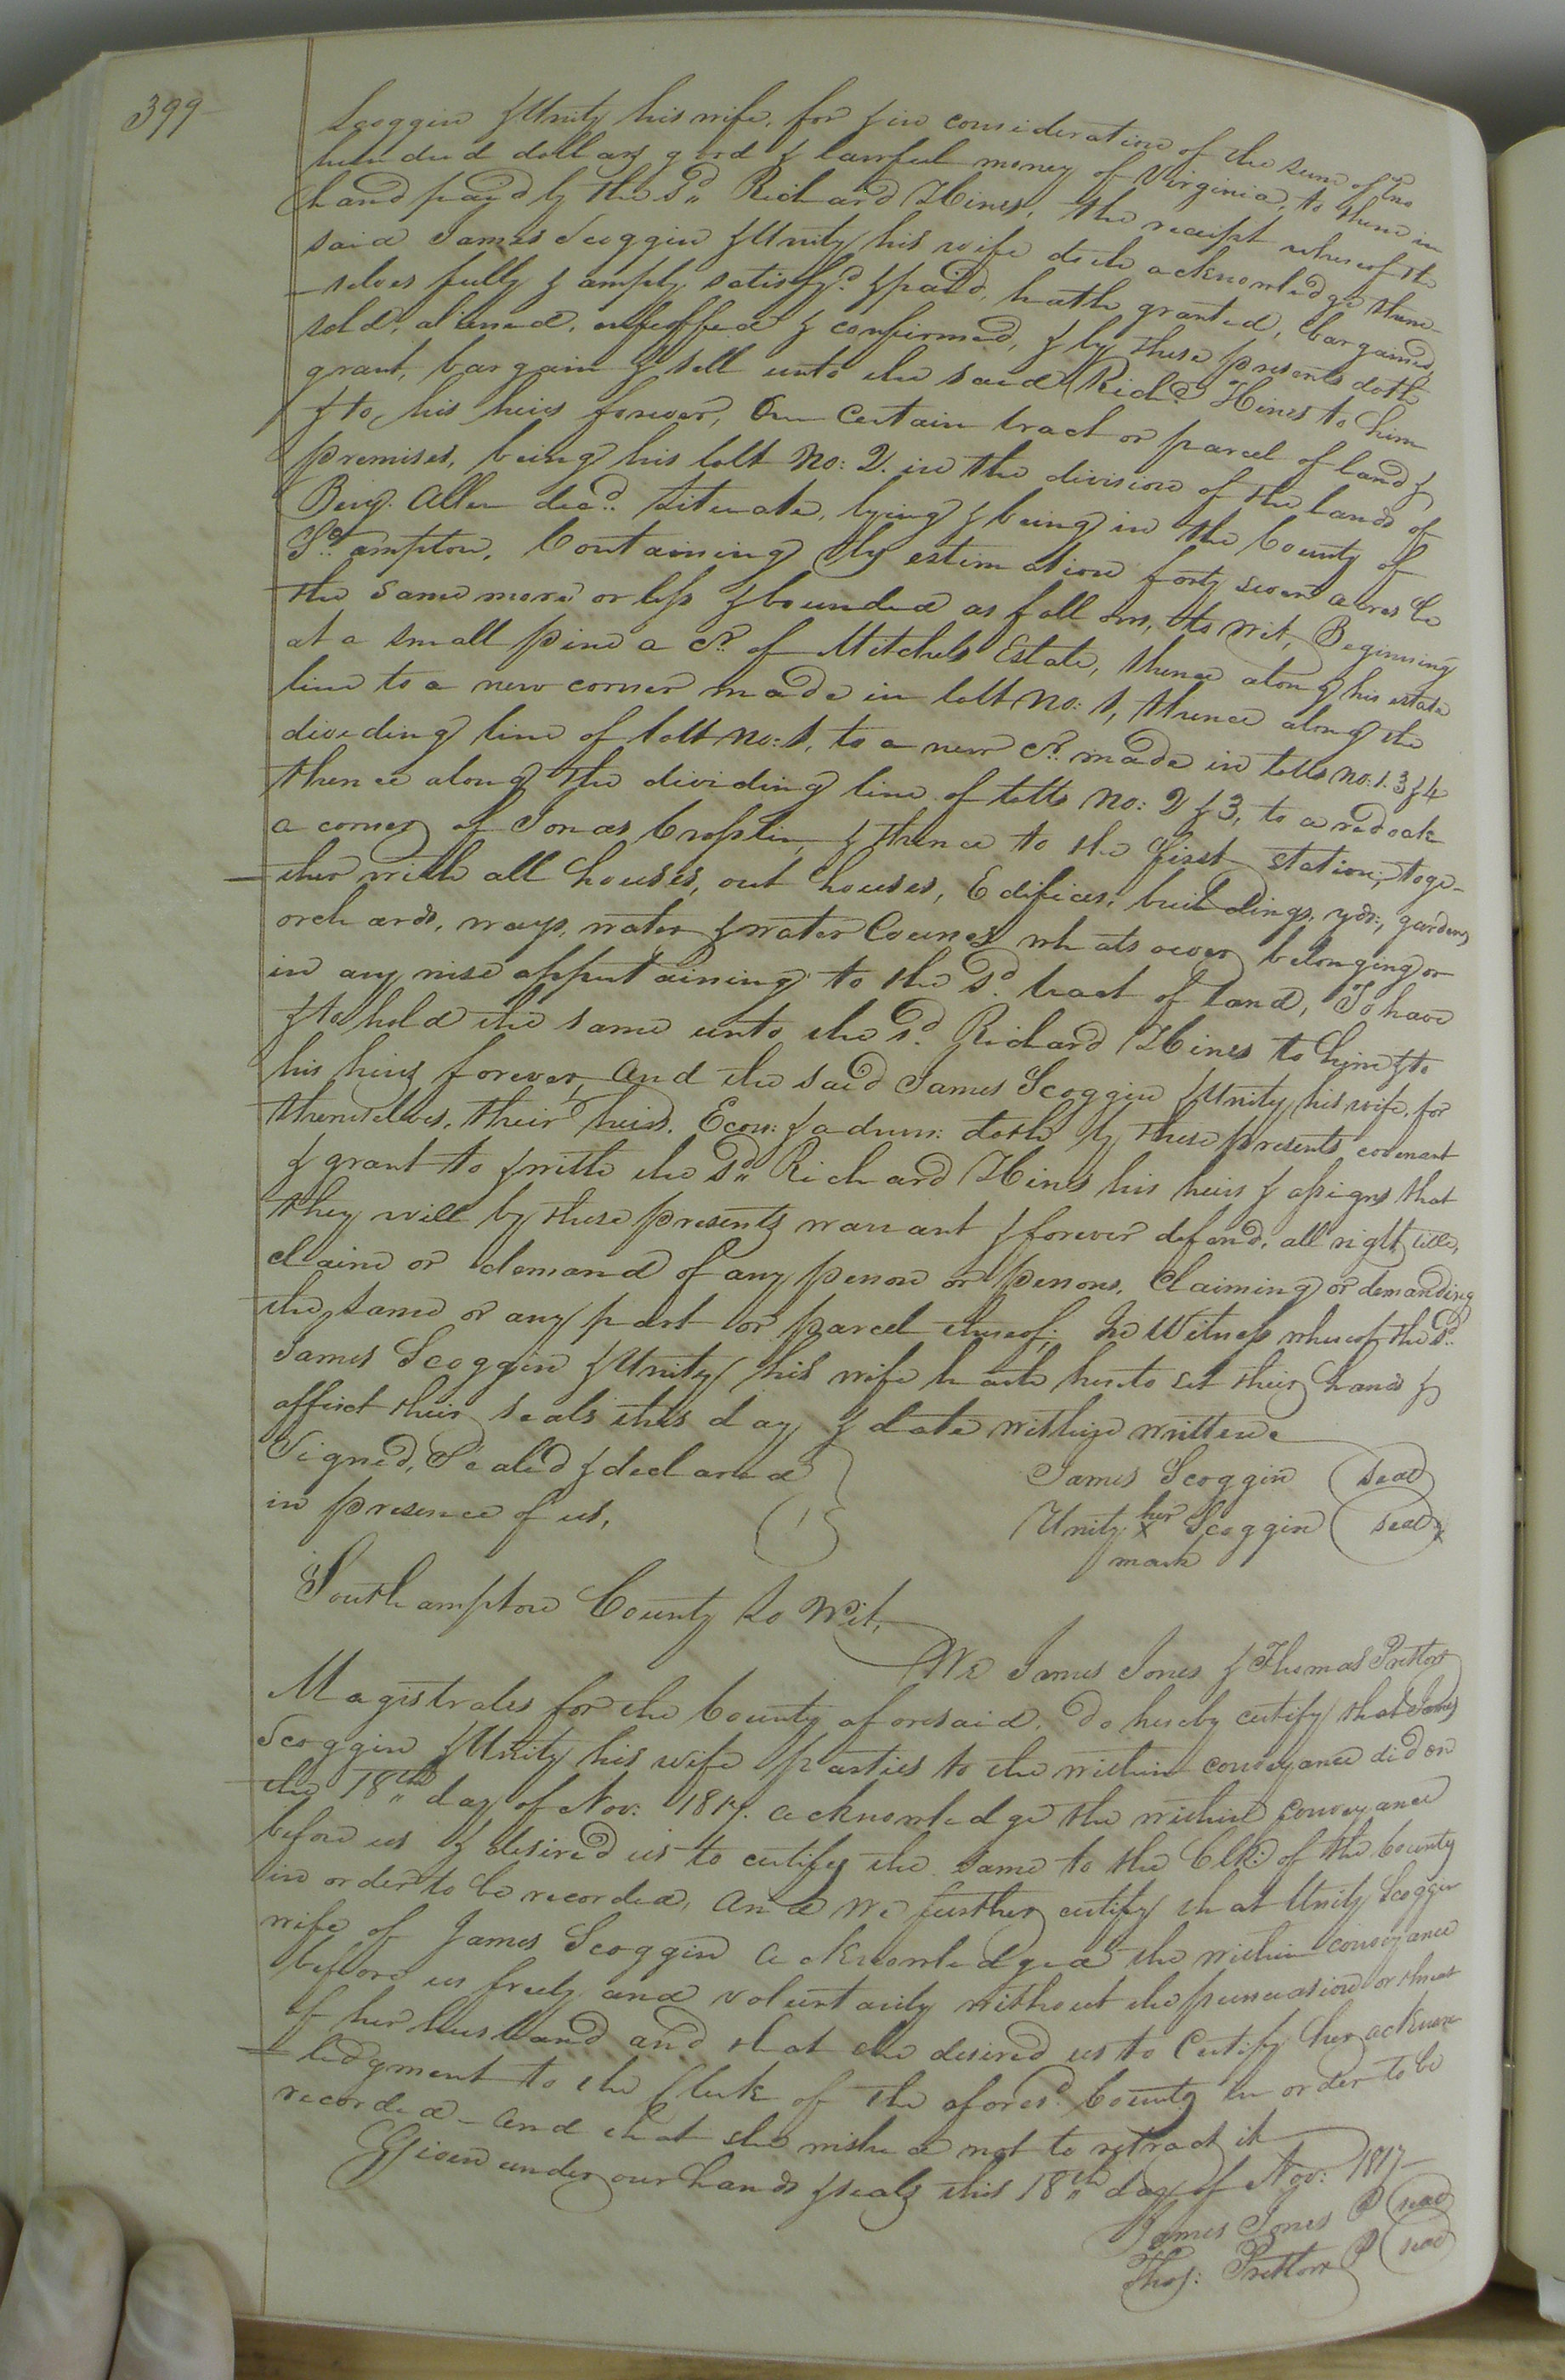 399
Scoggin & Unity his wife, for & in consideration of the sum of Two
hundred dollars good & lawful money of Virginia, to them in
hand paid by the sd. Richard Hines, the receipt whereof the
said James Scoggin & Unity his wife doth acknowledge them-
-selves fully & amply satisfyd. & paid, hath granted, bargained,
sold, aliened, enfeoffed & confirmed, & by these presents doth
grant, bargain & sell unto the said Richd. Hines to him
& to his heirs forever, One certain tract or parcel of land &
premises, being his lott No: 2. in the division of the lands of
Benj. Allen decd. situate, lying & being in the County of
So.ampton, Containing by estimation forty seven acres be
the same more or less & bounded as follows, to wit, Beginning
at a small pine a Cr. of Mitchels Estate, thence along his estate
line to a new corner made in lott No: 1, thence along the
dividing line of lott No: 1, to a new Cr. made in lotts No: 1. 3 & 4
thence along the dividing line of lotts No: 2 & 3, to a red oak
a corner of Jonas Crosslin, & thence to the first station; toge-
-ther with all houses, out houses, Edifices, buildings, yds:, gardens
orchards, ways, water & water Courses whatsoever belonging or
in any wise appertaining to the sd. tract of land, To have
& to hold the same unto the sd. Richard Hines to him & to
his heirs forever, And the said James Scoggin & Unity his wife, for
themselves, their heirs, Exors: & admrs: doth by these presents covenant
& grant to & with the sd. Richard Hines his heirs & assigns that
they will by these presents warrant & forever defend, all right, title,
claim or demand of any person or persons, Claiming or demanding
the same or any part or parcel thereof; In Witness whereof the sd.
James Scoggin & Unity his wife hath hereto set their hands &
affixt their seals this day & date within written
Signed, Sealed & declared
in presence of us,
James Scoggin (seal)
Unity her X Scoggin (seal)
mark
Southampton County to Wit,
We James Jones & Thomas Pretlow
Magistrates for the County aforesaid, do hereby certify that James
Scoggin & Unity his wife parties to the within conveyance did on
the 18th day of Nov: 1817. acknowledge the within conveyance
before us & desired us to certify the same to the Clk: of the County
in order to be recorded, And we further certify that Unity Scoggin
wife of James Scoggin acknowledged the within conveyance
before us freely and voluntarily without the persuasion or threat
of her husband and that she desired us to Certify her acknow-
-ledgment to the Clerk of the aforesd. County in order to be
recorded - And that she wished not to retract it
Given under our hands & seals this 18th day of Nov: 1817 -
James Jones (seal)
Thos: Pretlow (seal)